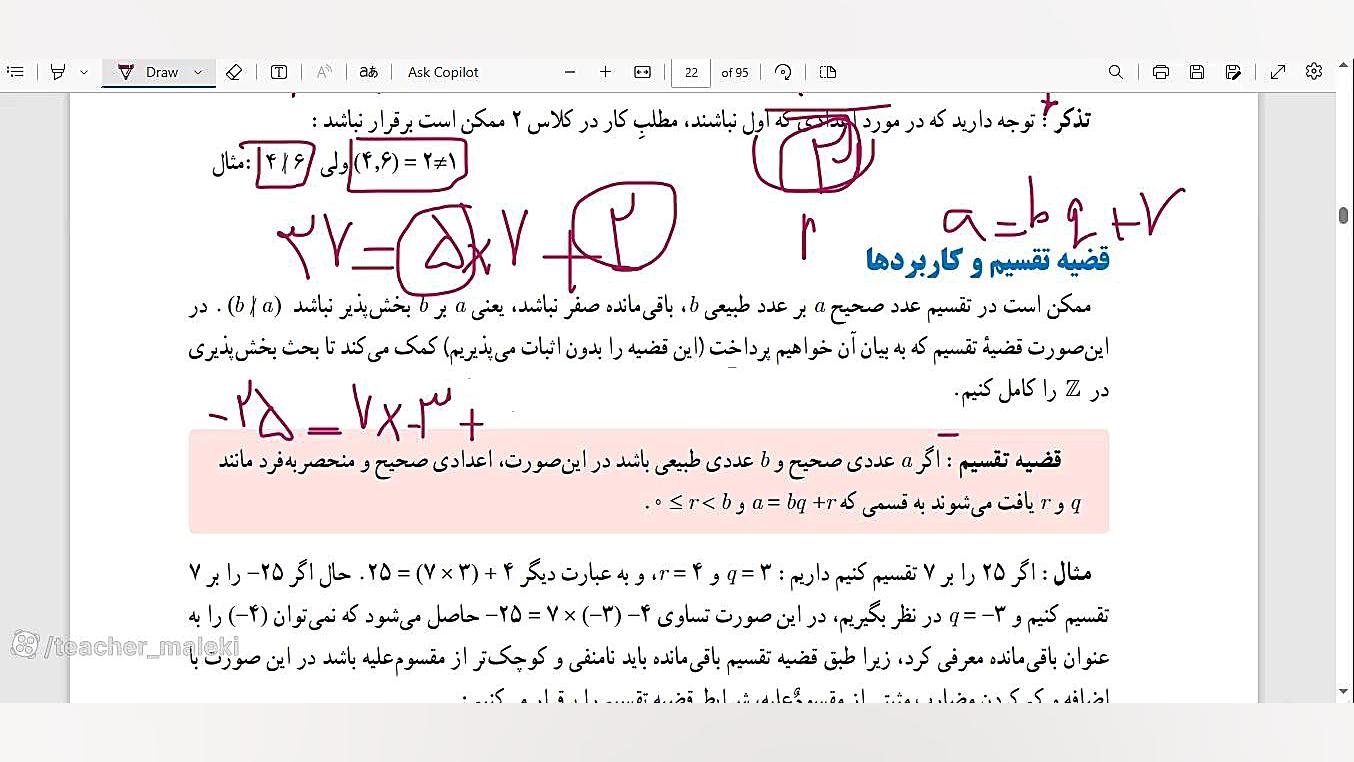 Draw
Ask Copilot
22 of 95
تذکر : توجه دارید که در مورد اعدادی که اول نباشند، مطلبِ کار در کلاس ۲ ممکن است برقرار نباشد :
مثال: ۴∤۶ ولی (۴,۶) = ۲≠۱
a = bq + r
r
۳۷ = ۵ × ۷ + ۲
قضیه تقسیم و کاربردها
ممکن است در تقسیم عدد صحیح a بر عدد طبیعی b، باقی‌مانده صفر نباشد، یعنی a بر b بخش‌پذیر نباشد (b∤a) . در
این‌صورت قضیهٔ تقسیم که به بیان آن خواهیم پرداخت (این قضیه را بدون اثبات می‌پذیریم) کمک می‌کند تا بحث بخش‌پذیری
در ℤ را کامل کنیم.
-۲۵ = ۷ × -۳ +
قضیه تقسیم : اگر a عددی صحیح و b عددی طبیعی باشد در این‌صورت، اعدادی صحیح و منحصربه‌فرد مانند
q و r یافت می‌شوند به قسمی که a = bq +r و ۰ ≤ r < b.
مثال : اگر ۲۵ را بر ۷ تقسیم کنیم داریم : q = ۳ و r = ۴، و به عبارت دیگر ۲۵ = (۷ × ۳) + ۴. حال اگر ۲۵− را بر ۷
تقسیم کنیم و q = −۳ در نظر بگیریم، در این صورت تساوی −۲۵ = ۷ × (−۳) −۴ حاصل می‌شود که نمی‌توان (−۴) را به
عنوان باقی‌مانده معرفی کرد، زیرا طبق قضیه تقسیم باقی‌مانده باید نامنفی و کوچک‌تر از مقسوم‌علیه باشد در این صورت با
اضافه و کم کردن مضارب مثبتی از مقسومٌ‌علیه، شرایط قضیه تقسیم را برقرار می‌کنیم:
/teacher_maleki